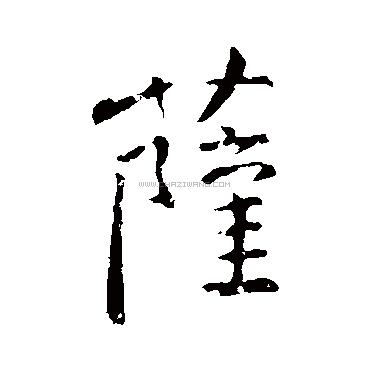 薩
WWW.CHAZIWANG.COM